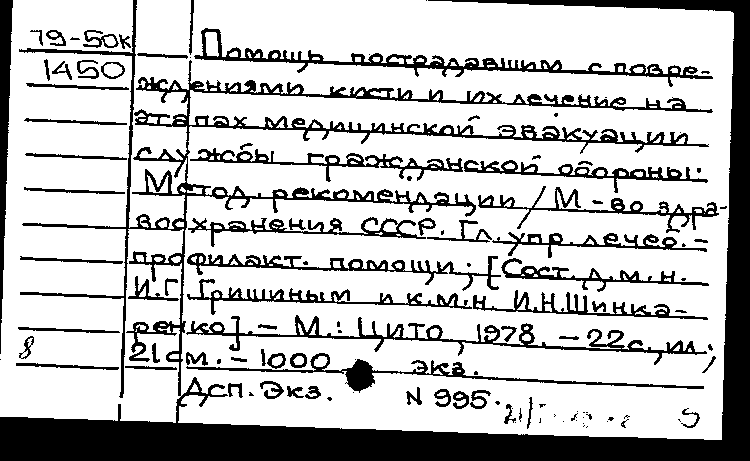 79-50к Помощь пострадавшим с повре-
1450 ждениями кисти и их лечение на
этапах медицинской эвакуации
службы гражданской обороны:
Метод. рекомендации / М-во здра-
воохранения СССР. Гл. упр. лечеб.-
профилакт. помощи; [Сост. д.м.н.
И.Г. Гришиным и к.м.н. И.Н. Шинка-
ренко]. - М.: ЦИТО, 1978. - 22с., ил.;
8 21см. - 1000 экз.
Дсп. Экз. N 995.